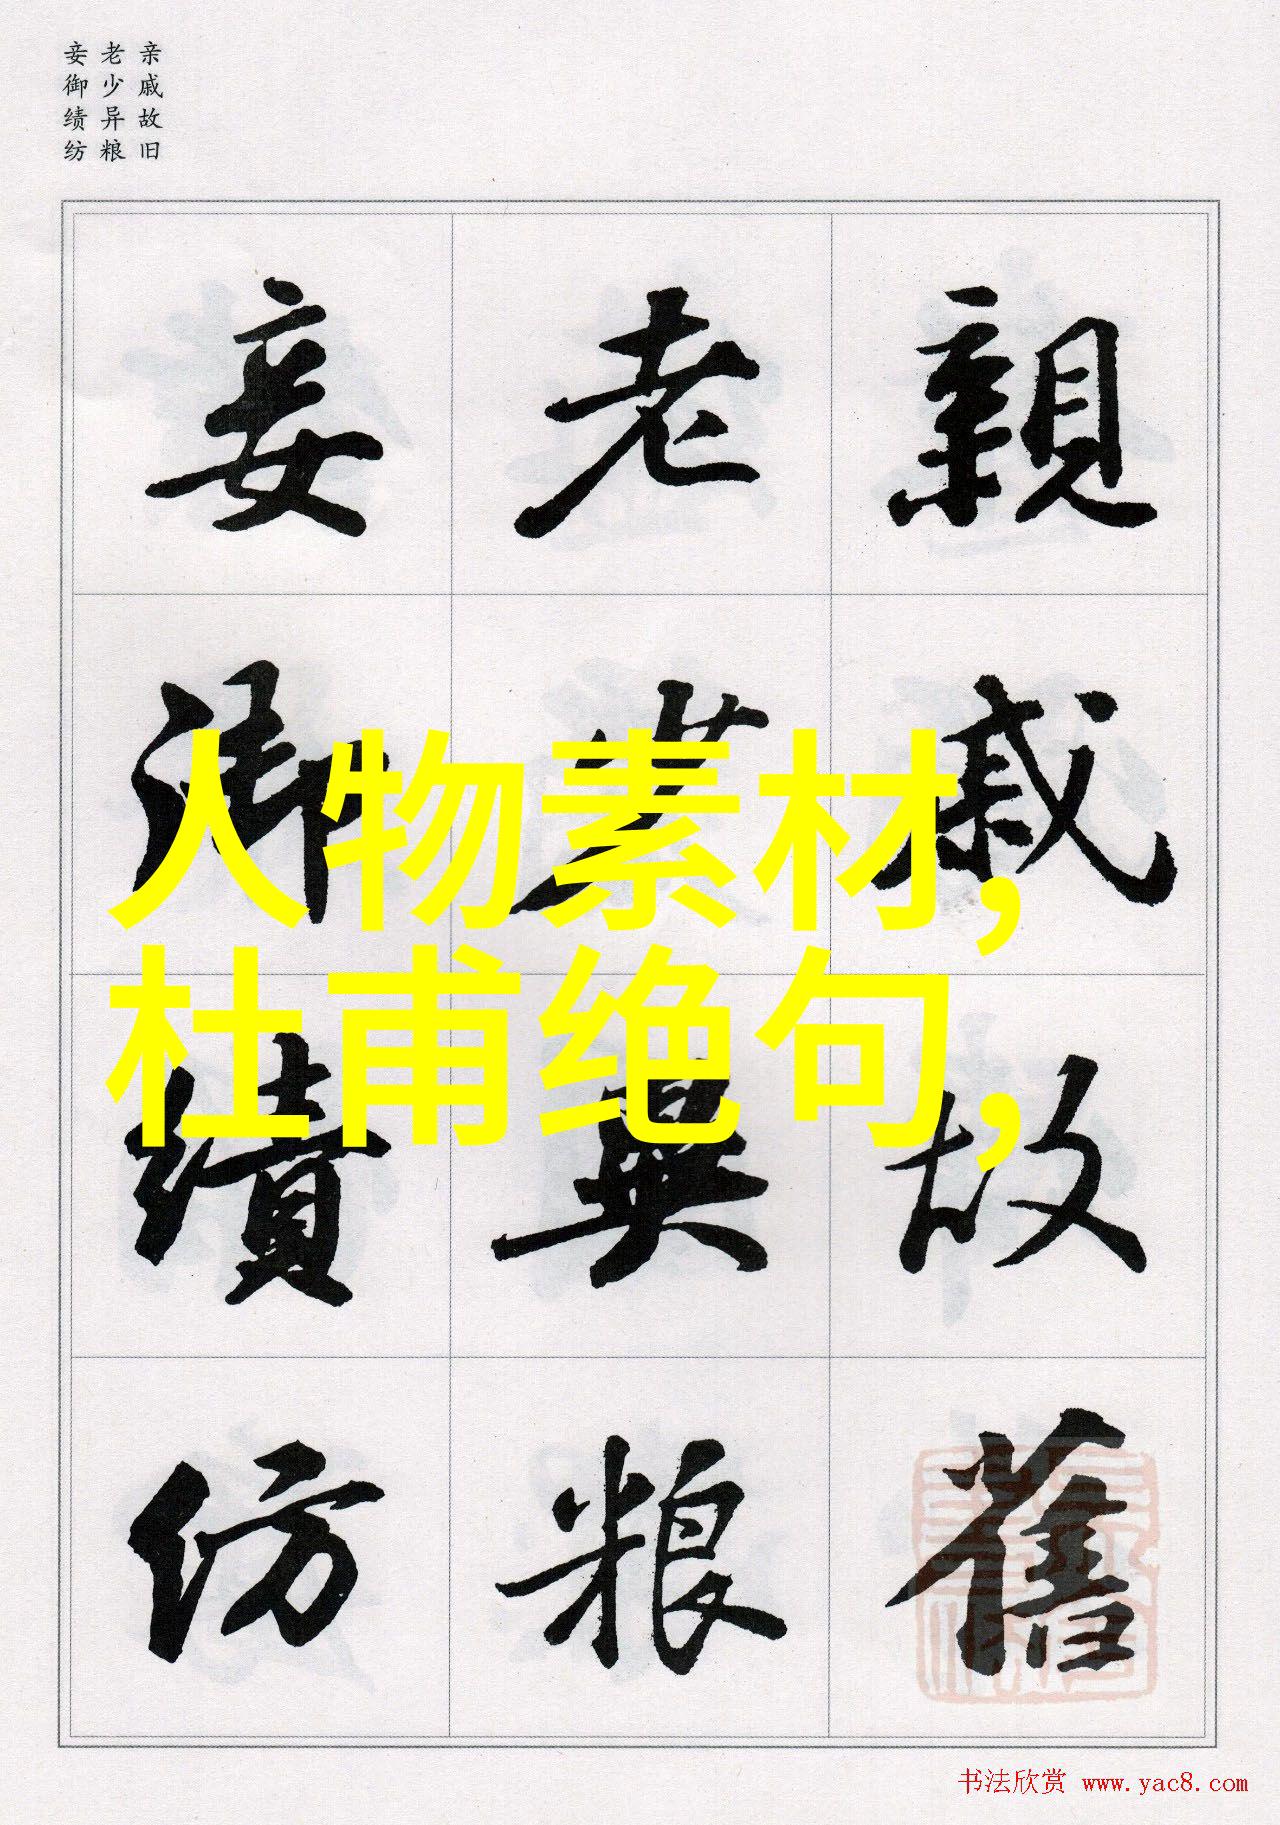 亲戚故旧
老少异粮
妾御绩纺
親戚故舊
老少異粮
妾御績紡
人物素材,
杜甫绝句,
书法欣赏 www.yac8.com